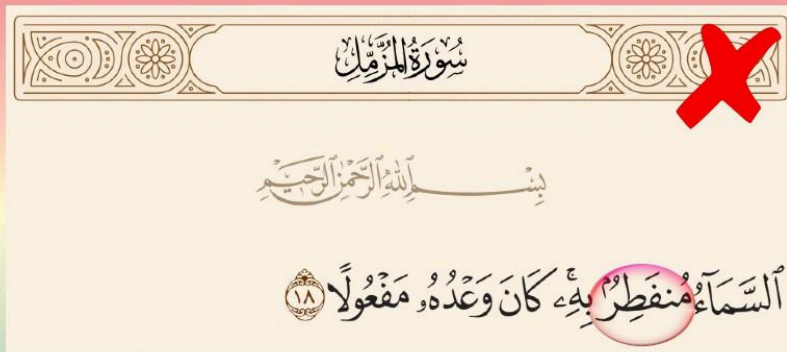 سُورَةُ المُزَّمِّلِ
بِسْمِ ٱللَّهِ ٱلرَّحْمَٰنِ ٱلرَّحِيمِ
ٱلسَّمَآءُ مُنفَطِرُۢ بِهِۦۚ كَانَ وَعْدُهُۥ مَفْعُولًا ١٨